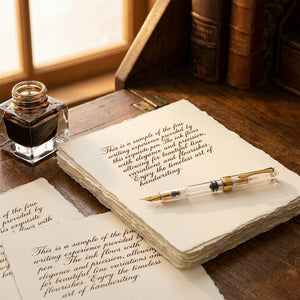 This is a sample of the fine
writing experience provided by
this exquisite pen. The ink flows
with elegance and precision,
allowing for beautiful line
variations and flourishes.
Enjoy the timeless art of
handwriting.
This is a sample of
writing experience provided
pen. The ink flows with
elegance and precision, allowing
for beautiful line variations and
flourishes. Enjoy the timeless
art of handwriting.
is a sample of
provided by
flows with